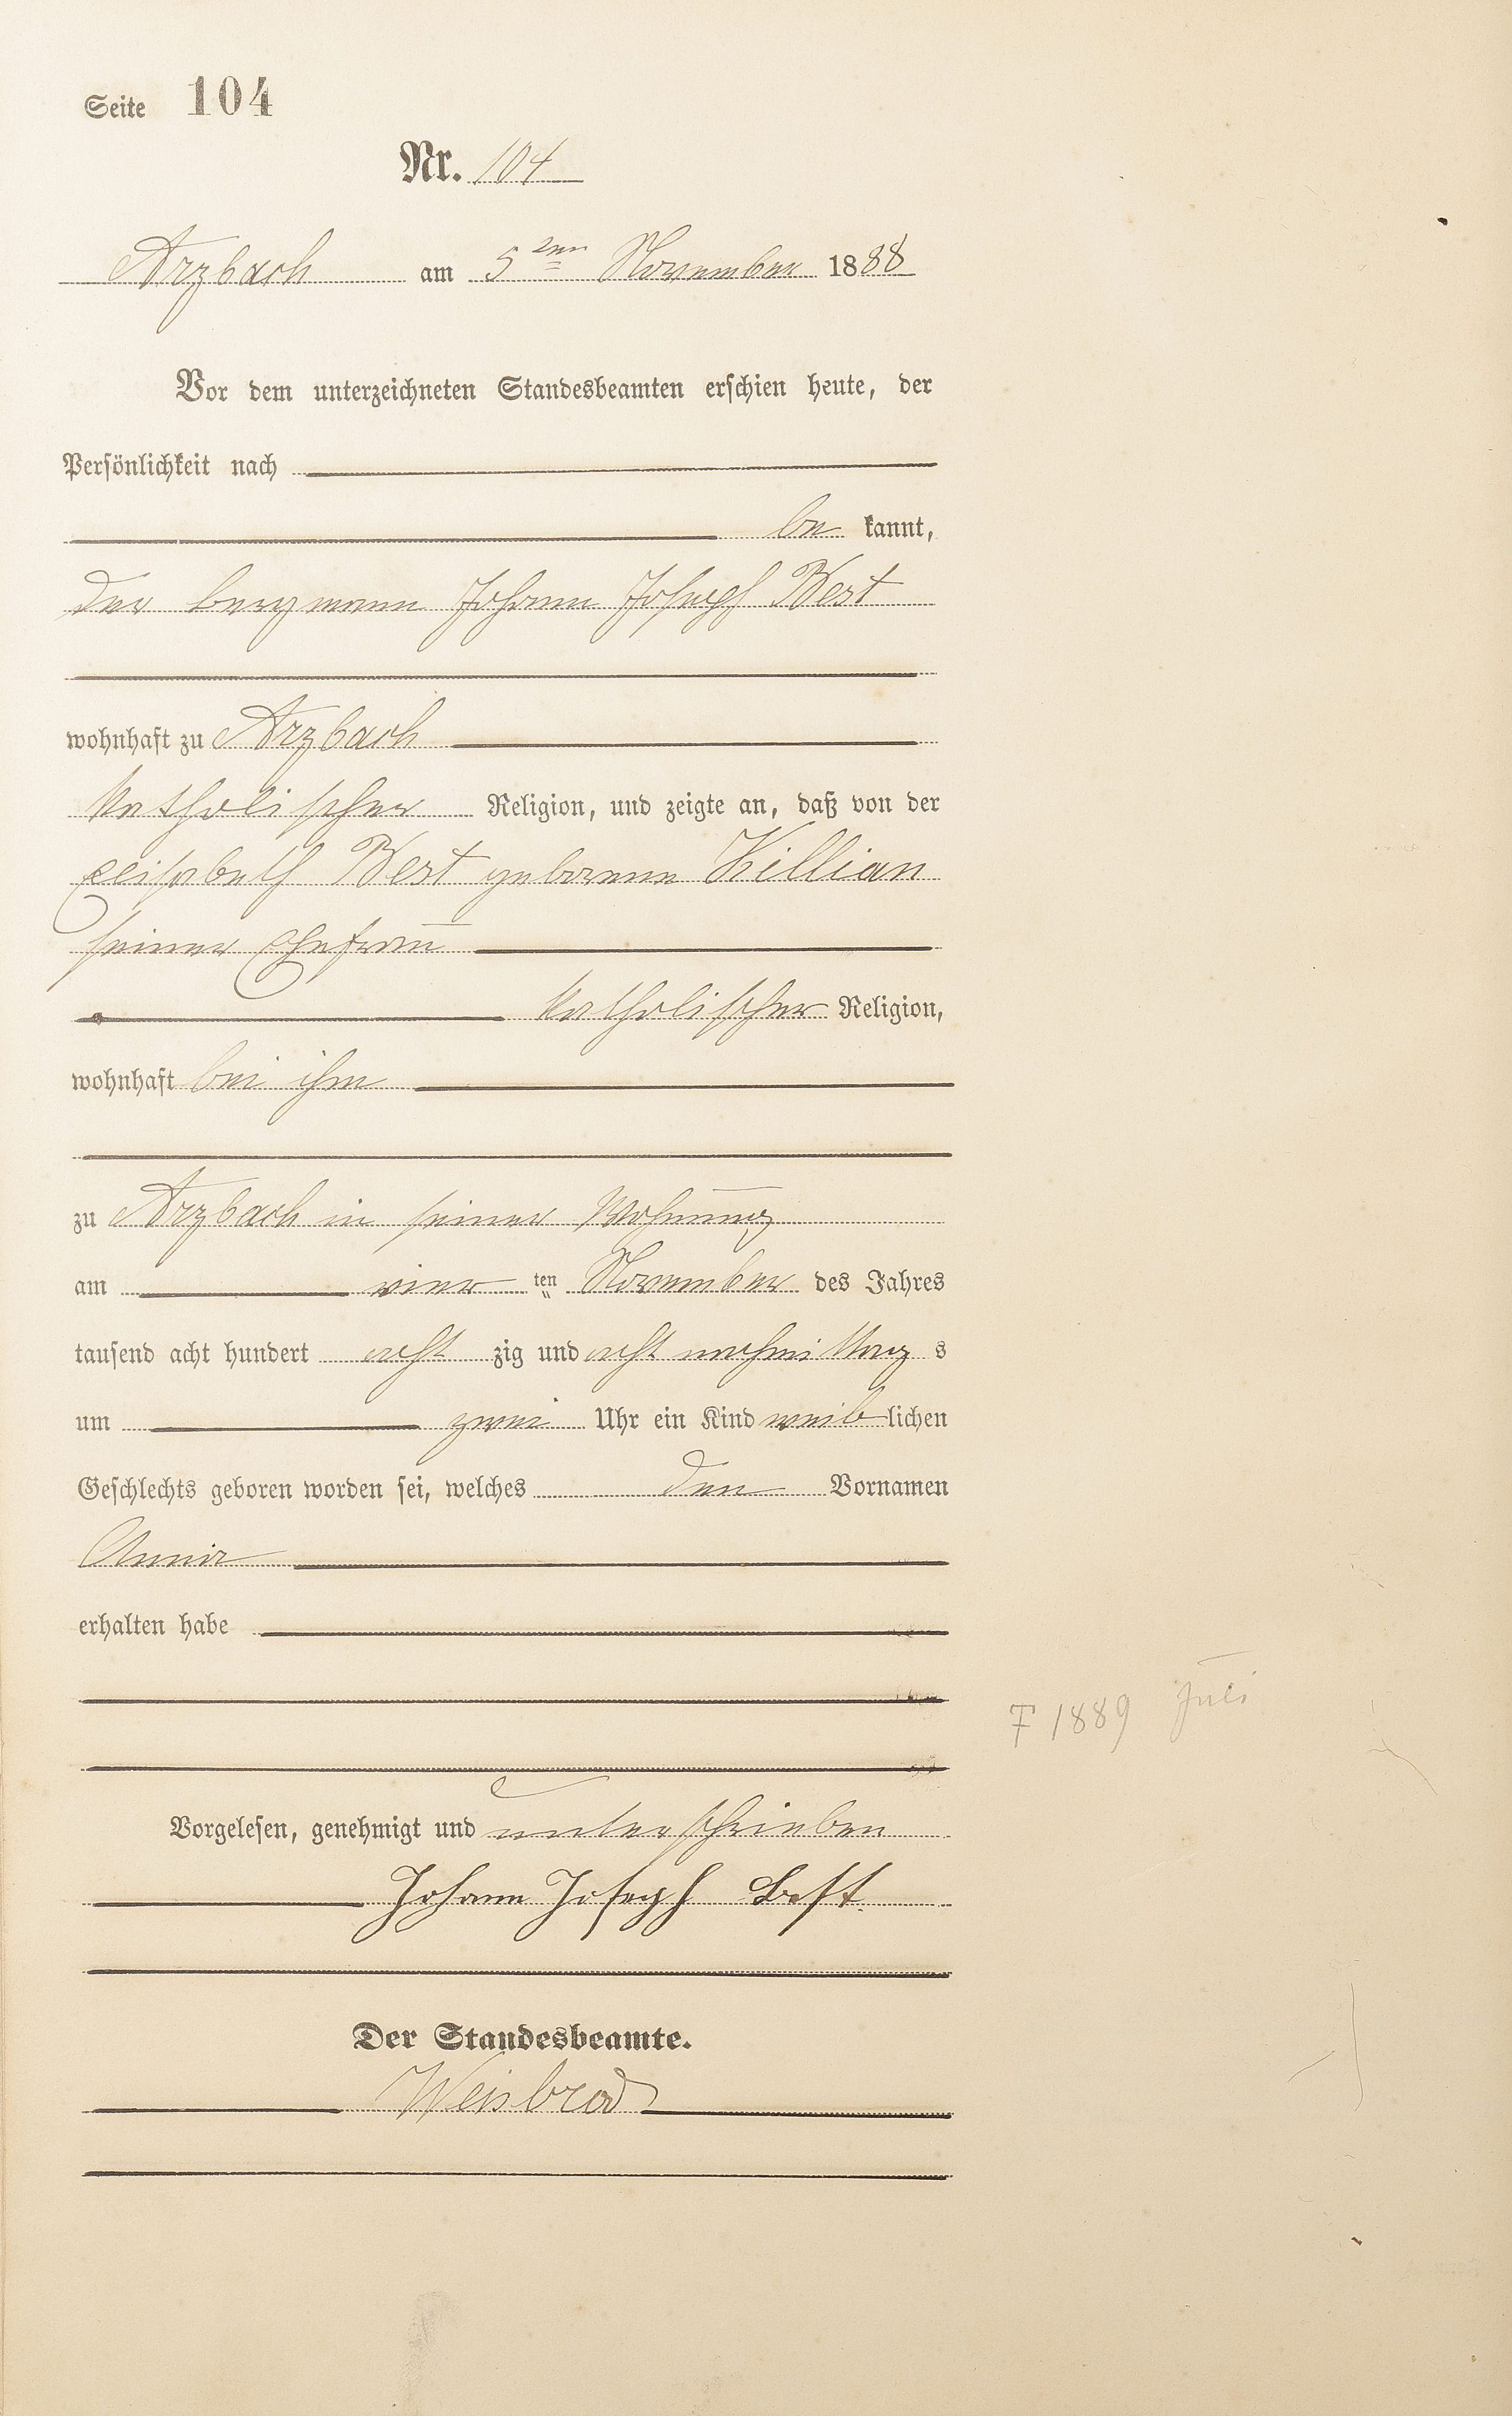 Seite 104
Nr. 104
Arzbach am 5ten November 1888
Vor dem unterzeichneten Standesbeamten erschien heute, der
Persönlichkeit nach
be kannt,
der bergmann Johann Joseph Best
wohnhaft zu Arzbach
katholischer Religion, und zeigte an, daß von der
Elisabeth Best geborene Killian
seiner Ehefrau
katholischer Religion,
wohnhaft bei ihm
zu Arzbach in seiner Wohnung
am vier ten November des Jahres
tausend acht hundert acht zig und acht nachmittag s
um zwei Uhr ein Kind weib lichen
Geschlechts geboren worden sei, welches den Vornamen
Anna
erhalten habe
† 1889 Juli
Vorgelesen, genehmigt und unterschrieben
Johann Joseph Best
Der Standesbeamte.
Weisbrod